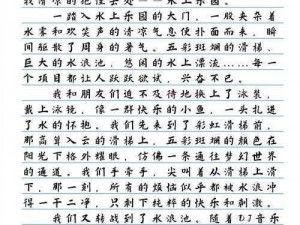 我清凉的抱住去处——水上乐园。
一踏入水上乐园的大门，一股夹杂着
水雾和欢笑声的清凉气息便扑面而来，瞬
间驱散了周身的暑气。五彩斑斓的滑梯，
巨大的水浪池，悠闲的水上漂流……每一
个项目都让人跃跃欲试，兴奋不已。
我和朋友们迫不及待地换上了泳装，
戴上泳镜，像一群快乐的小鱼，一头扎进
了水的怀抱。我们先来到了彩虹滑梯前，
那高耸入云的滑梯上，五彩斑斓的颜色在
阳光下格外耀眼，仿佛一条通往梦幻世界
的通道。我们手牵手，尖叫着从滑梯上滑
下，那一刻，所有的烦恼似乎都被水浪冲
得一干二净，只剩下纯粹的快乐和刺激。
我们又转战到了水浪池。随着DJ音乐